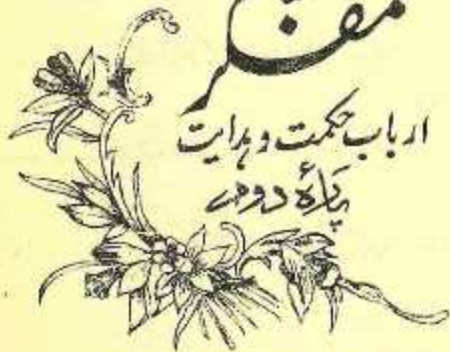 مفکر
ارباب حکمت و ہدایت
پارۂ دوم